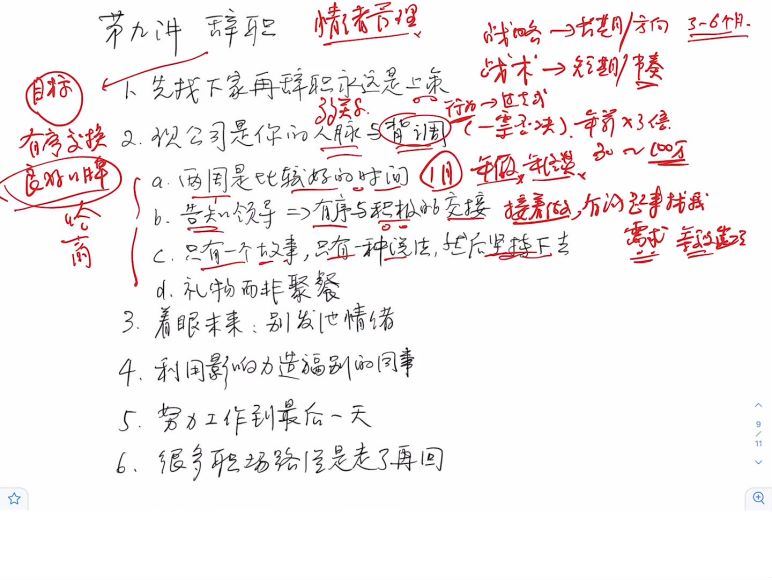 第九讲 辞职 情绪管理
战略 → 长期/方向 3-6个月.
战术 → 短期/节奏
目标
1. 先找下家再辞职永远是上策
弱关系
行为 →
2. 现公司是你的人脉与背调 (一票否决). 年薪×3倍
有序交接
30 ~ 100万
良好口碑
a. 两周是比较好的时间 1月
b. 告知领导 ⇒ 有序与积极的交接
哈
商
c. 只有一个故事, 只有一种说法, 然后坚持下去
需求
d. 礼物而非聚餐
3. 着眼未来: 别发泄情绪
4. 利用影响力造福别的同事
5. 努力工作到最后一天
6. 很多职场路径是走了再回
9
/
11